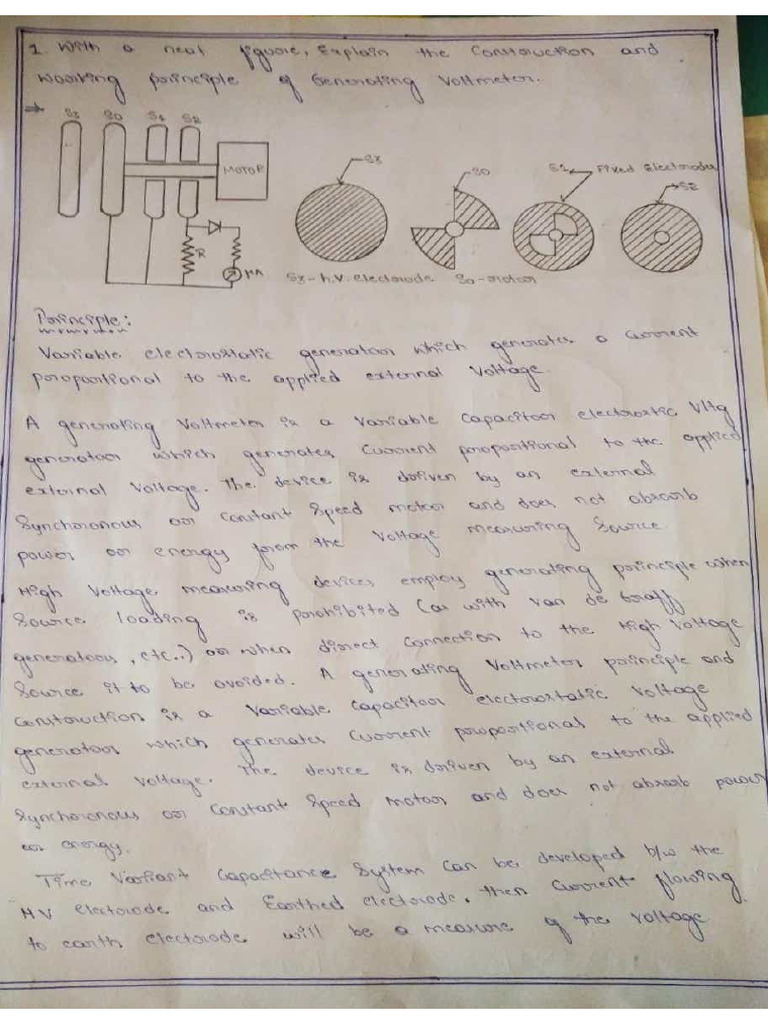 1. With a neat figure, Explain the Construction and
Working principle of Generating Voltmeter.
S3 S0 S1 S2
MOTOR
S3 S0 S1 Fixed Electrodes S2
R
MA
S3 - h.v. electrode S0 - motor
Principle:
Variable electrostatic generator which generates a current
proportional to the applied external Voltage.
A generating Voltmeter is a Variable Capacitor electrostic Vltg
generator which generates Current proportional to the applied
external Voltage. The device is driven by an external
Synchronous or Constant Speed motor and does not absorb
power or energy from the Voltage measuring Source.
High Voltage measuring devices employ generating principle when
Source loading is prohibited (as with Van de Graff
generators, etc..) or when direct Connection to the High Voltage
Source it to be avoided. A generating Voltmeter principle and
Construction is a Variable Capacitor electrostatic Voltage
generator which generates Current proportional to the applied
external Voltage. The device is driven by an external
Synchronous or Constant Speed Motor and does not absorb power
or energy.
Time Variant Capacitance System Can be developed b/w the
HV electrode and Earthed electrode. then Current flowing
to earth electrode will be a measure of the Voltage